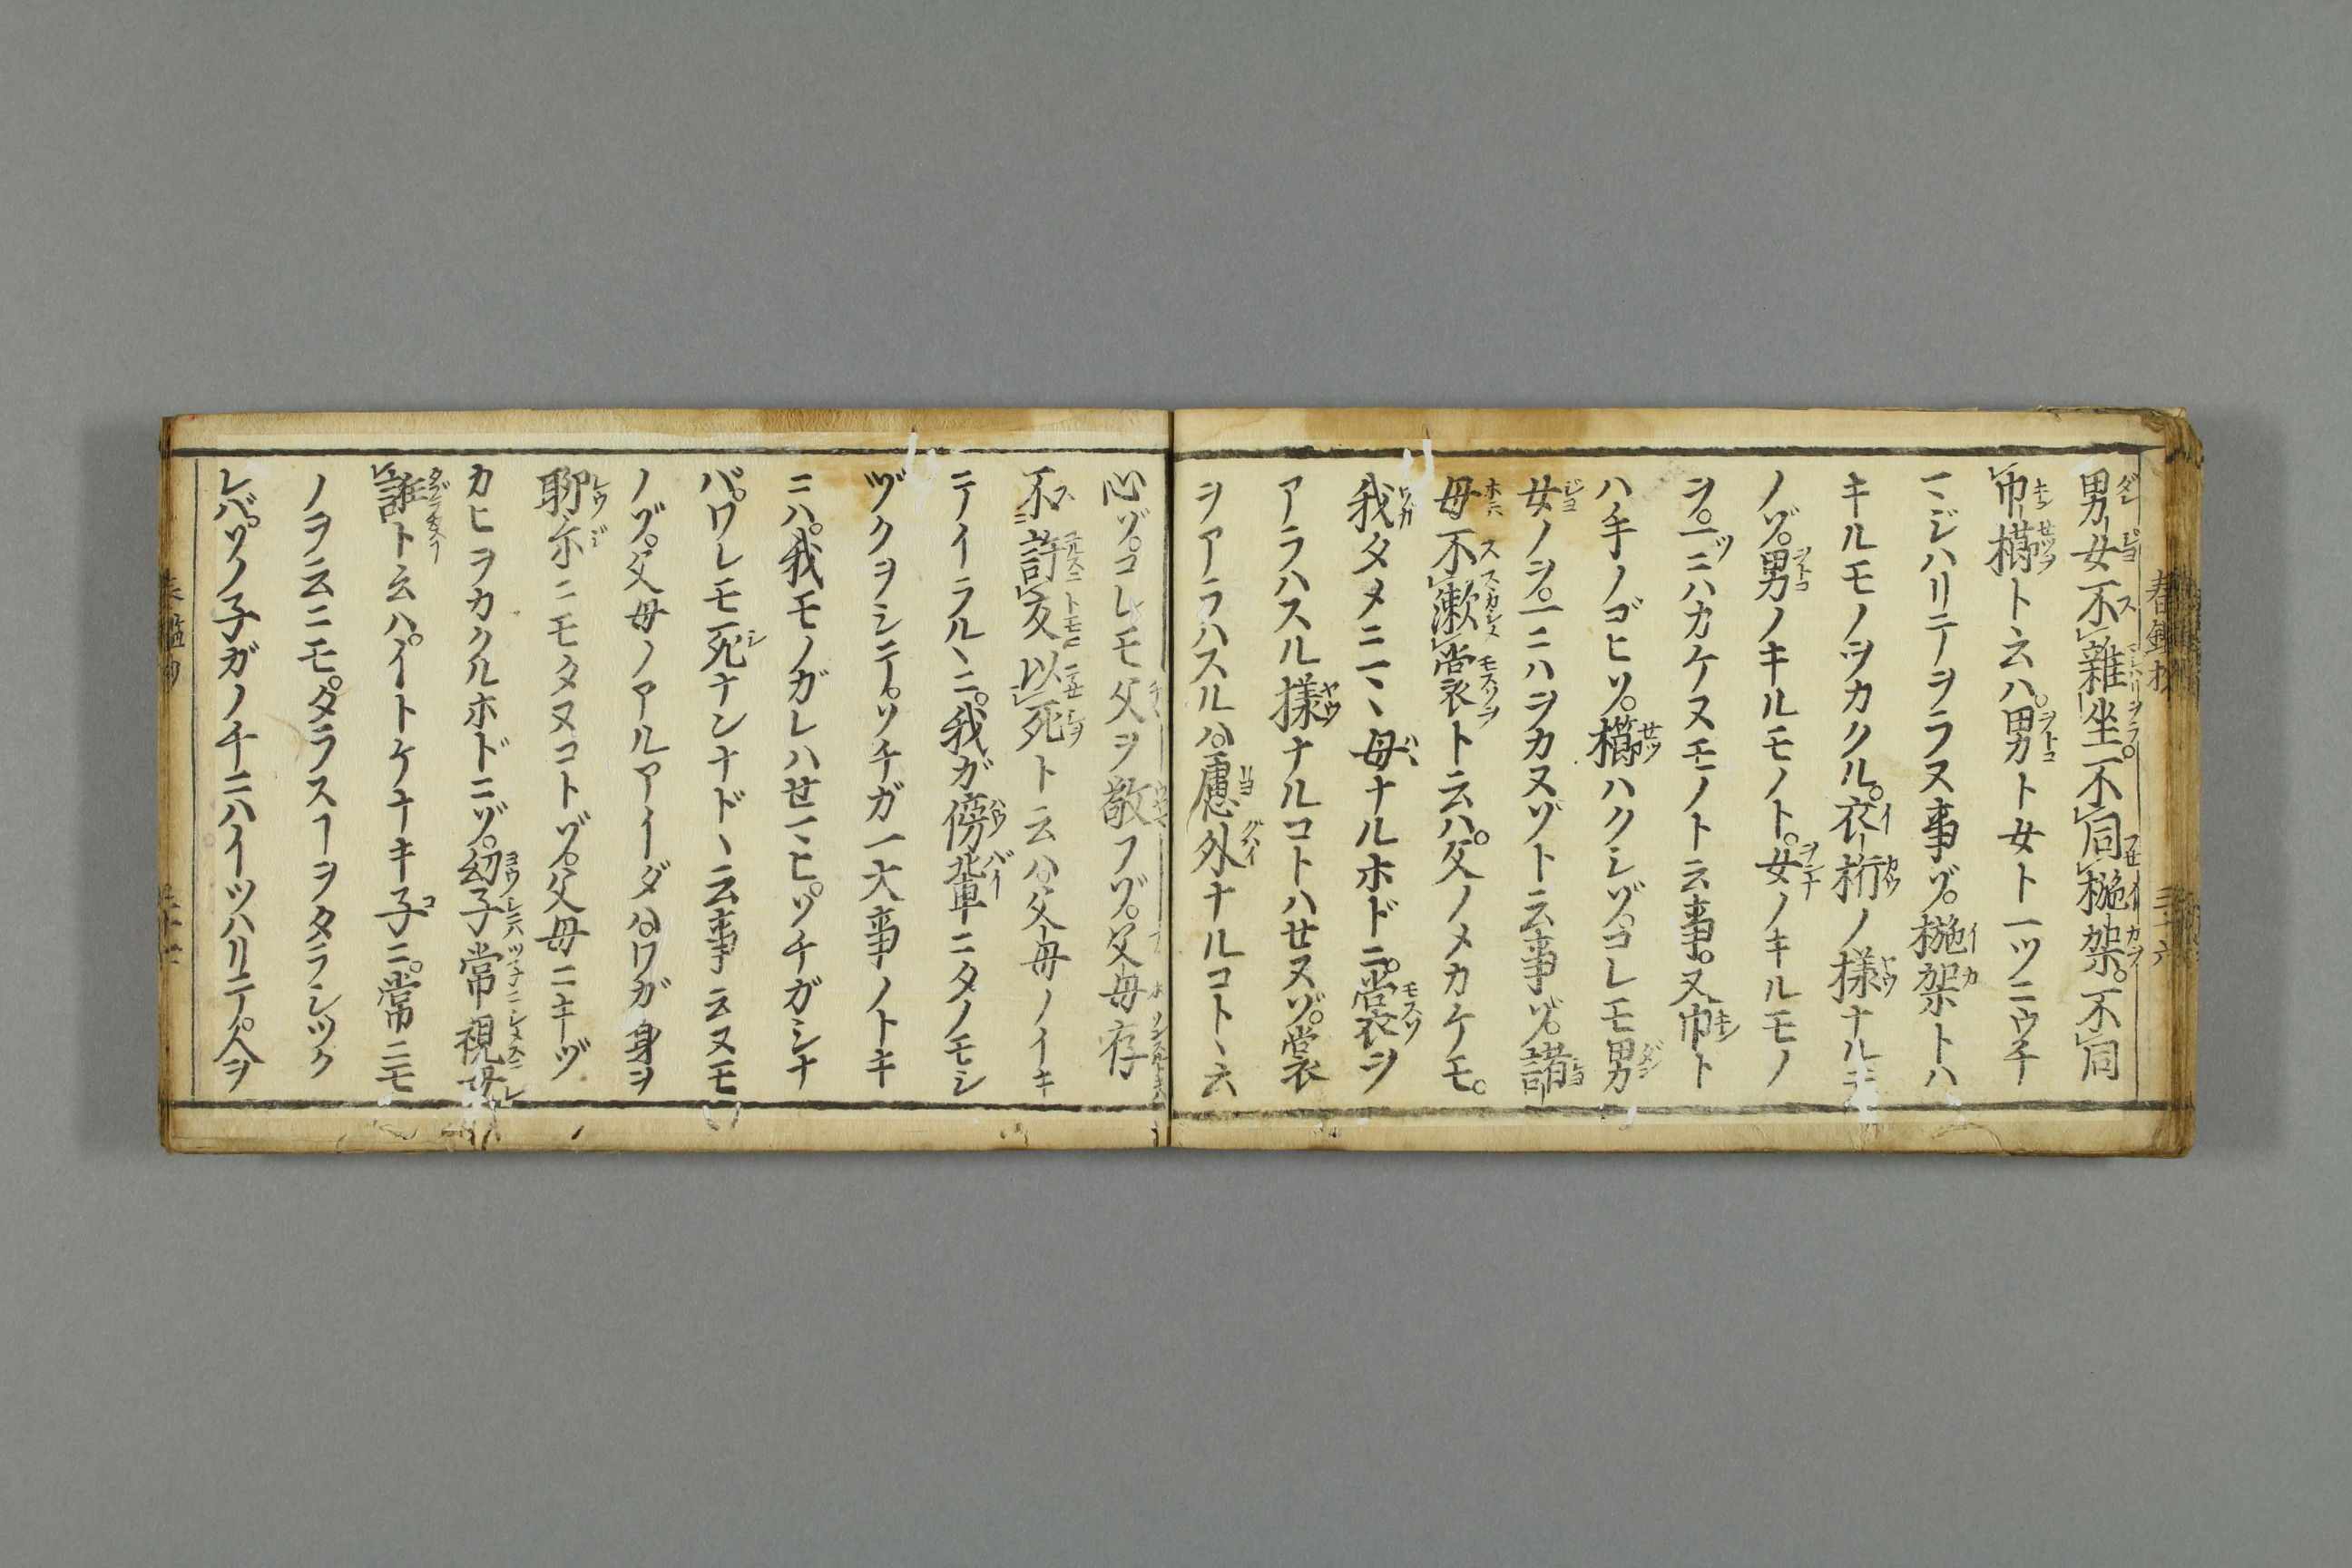 男女不雜坐。不同椸架。不同
巾櫛ト云ハ。男ト女ト一ツニウチ
マジハリテヲラヌ事ゾ。椸架トハ
キルモノヲカクル。衣桁ノ様ナルモ
ノゾ。男ノキルモノト。女ノキルモノ
ヲ。一ツニハカケヌモノト云事。又巾ト
ハ手ノゴヒゾ。櫛ハクシゾ。コレモ男
女ノヲ。一ニハヲカヌゾト云事ゾ。諸
母不漱裳ト云ハ。父ノメカケモ。
我タメニマヽ母ナルホドニ。裳ヲ
アラハスル様ナルコトハせヌゾ。裳
ヲアラハスルハ。慮外ナルコトヽ云
心ゾ。コレモ父ヲ敬フゾ。父母存
不許友以死ト云ハ。父母ノイキ
テイラルヽニ。我ガ傍輩ニタノモシ
ヅクヲシテ。ソチガ一大事ノトキ
ニハ。我モノガレハせマヒ。ソチガシナ
バ。ワレモ死ナンナドヽ云事云ヌモ
ノゾ。父母ノアルアイダハ。ワガ身ヲ
聊尓ニモタヌコトゾ。父母ニキヅ
カヒヲカクルホドニゾ。幼子常視毋
誑ト云ハ。イトケナキ子ニ。常ニモ
ノヲ云ニモ。ダラスヿヲタラシツク
レバ。ソノ子ガノチニハイツハリテ。人ヲ